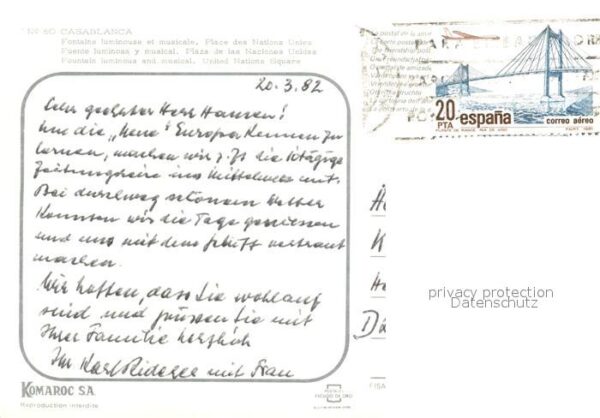 Nº 60 CASABLANCA
Fontaine lumineuse et musicale. Place des Nations Unies
Fuente luminosa y musical. Plaza de las Naciones Unidas
Fountain luminous and musical. United Nations Square
20.3.82
Sehr geehrter Herr Hansen!
Um die "Neue" Europa kennen zu
lernen, machen wir z. Zt die 10tägige
ins Mittelmeer mit.
Bei durchweg schönem Wetter
konnten wir die Tage geniessen
und uns mit dem Schiff vertraut
machen.
Wir hoffen, dass Sie wohlauf
sind und grüssen Sie mit
Ihrer Familie herzlich
Ihr Karl mit Frau
KOMAROC SA
Reproduction interdite
20
PTA
españa
correo aéreo
privacy protection
Datenschutz